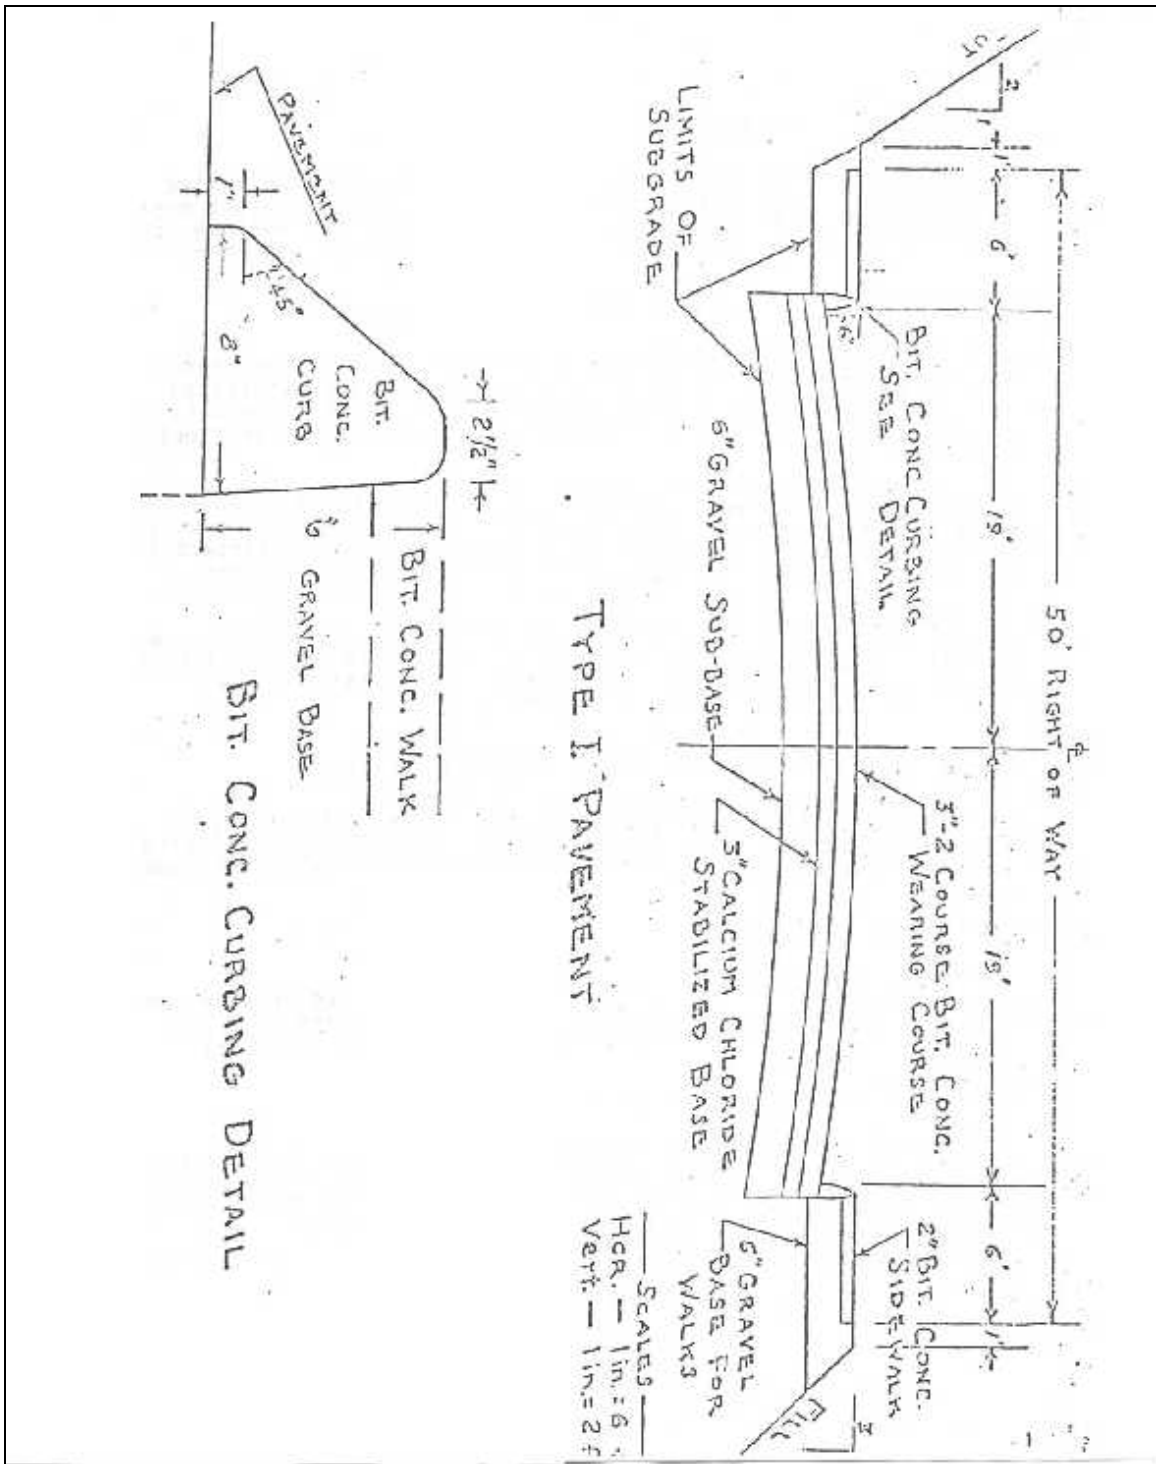 50' RIGHT OF WAY
℄
2
1
1'
6'
19'
19'
6'
1'
CUT
BIT. CONC CURBING
SEE DETAIL
3"-2 COURSE BIT. CONC.
WEARING COURSE
2" BIT. CONC.
SIDEWALK
6"
LIMITS OF
SUBGRADE
6" GRAVEL SUB-BASE
3" CALCIUM CHLORIDE
STABILIZED BASE
6" GRAVEL
BASE FOR
WALKS
FILL
TYPE I PAVEMENT
SCALES
HOR. — 1 in. = 6
Vert. — 1 in. = 2 f
PAVEMENT
1"
45°
8"
BIT.
CONC.
CURB
2 1/2"
BIT. CONC. WALK
6" GRAVEL BASE
BIT. CONC. CURBING DETAIL